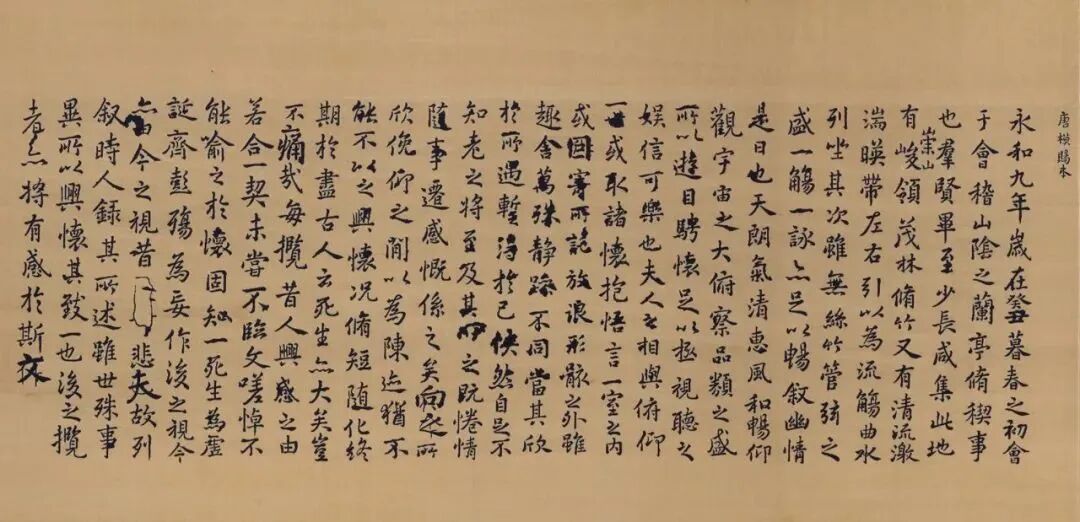 唐模賜本
永和九年歲在癸丑暮春之初會
于會稽山陰之蘭亭脩稧事
也羣賢畢至少長咸集此地
有崇山峻領茂林脩竹又有清流激
湍暎帶左右引以為流觴曲水
列坐其次雖無絲竹管弦之
盛一觴一詠亦足以暢叙幽情
是日也天朗氣清惠風和暢仰
觀宇宙之大俯察品類之盛
所以遊目騁懷足以極視聽之
娛信可樂也夫人之相與俯仰
一世或取諸懷抱悟言一室之內
或因寄所託放浪形骸之外雖
趣舍萬殊靜躁不同當其欣
於所遇暫得於己怏然自足不
知老之將至及其所之既惓情
隨事遷感慨係之矣向之所
欣俛仰之閒以為陳迹猶不
能不以之興懷況脩短隨化終
期於盡古人云死生亦大矣豈
不痛哉每攬昔人興感之由
若合一契未嘗不臨文嗟悼不
能喻之於懷固知一死生為虛
誕齊彭殤為妄作後之視今
亦由今之視昔悲夫故列
叙時人錄其所述雖世殊事
異所以興懷其致一也後之攬
者亦將有感於斯文